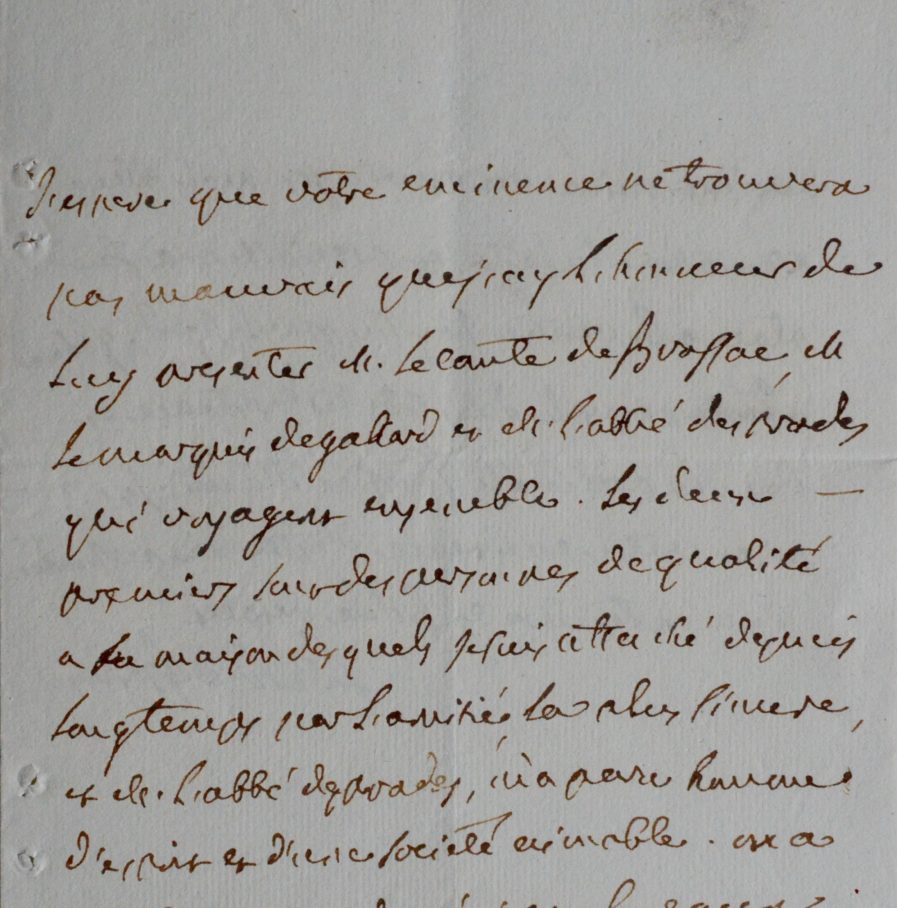 J'espere que votre eminence ne trouvera
pas mauvais que j'ay l'honneur de
luy presenter M. le comte de Brassac, M
le marquis de galard et M. l'abbé des prades
qui voyagent ensemble. les deux —
premiers sont des personnes de qualité
a la maison desquels je suis attaché depuis
longtemps par l'amitié la plus sincere,
et M. l'abbé desprades, m'a paru homme
d'esprit et d'une societé aimable. on a